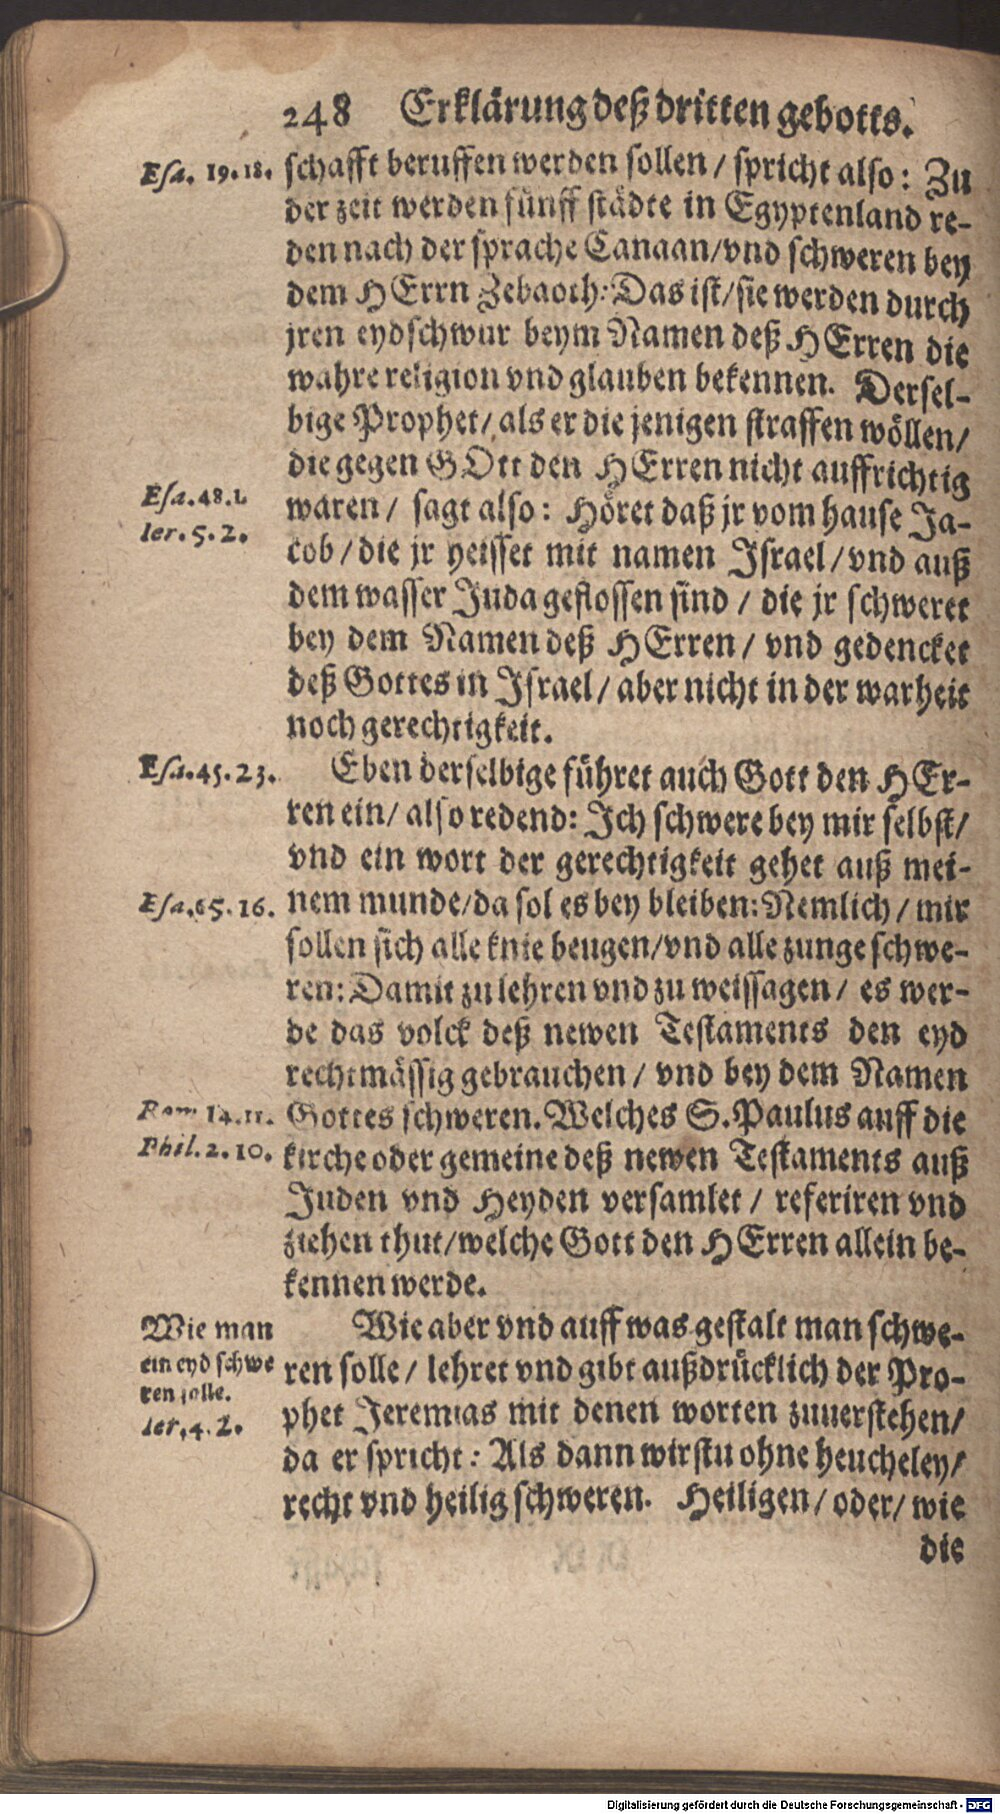 248 Erklärung deß dritten gebotts.
Esa. 19.18.
schafft beruffen werden sollen / spricht also: Zu
der zeit werden fünff städte in Egyptenland re-
den nach der sprache Canaan/vnd schweren bey
dem HErrn Zebaoth: Das ist/sie werden durch
jren eydschwur beym Namen deß HErren die
wahre religion vnd glauben bekennen. Dersel-
bige Prophet/ als er die jenigen straffen wöllen/
die gegen GOtt den HErren nicht auffrichtig
Esa. 48.1.
Ier. 5.2.
waren / sagt also: Höret daß jr vom hause Ja-
cob / die jr heisset mit namen Israel / vnd auß
dem wasser Juda geflossen sind / die jr schweret
bey dem Namen deß HErren / vnd gedencket
deß Gottes in Israel / aber nicht in der warheit
noch gerechtigkeit.
Esa. 45.23.
Eben derselbige führet auch Gott den HEr-
ren ein/ also redend: Ich schwere bey mir selbst/
vnd ein wort der gerechtigkeit gehet auß mei-
Esa. 65.16.
nem munde/da sol es bey bleiben: Nemlich / mir
sollen sich alle knie beugen/vnd alle zunge schwe-
ren: Damit zu lehren vnd zu weissagen / es wer-
de das volck deß newen Testaments den eyd
rechtmässig gebrauchen / vnd bey dem Namen
Rom 14.11.
Phil. 2.10.
Gottes schweren. Welches S. Paulus auff die
kirche oder gemeine deß newen Testaments auß
Juden vnd Heyden versamlet / referiren vnd
ziehen thut/welche Gott den HErren allein be-
kennen werde.
Wie man
ein eyd schwe
ren solle.
Ier. 4.2.
Wie aber vnd auff was gestalt man schwe-
ren solle / lehret vnd gibt außdrücklich der Pro-
phet Jeremias mit denen worten zuuerstehen/
da er spricht: Als dann wirstu ohne heucheley/
recht vnd heilig schweren. Heiligen / oder / wie
die
Digitalisierung gefördert durch die Deutsche Forschungsgemeinschaft - DFG